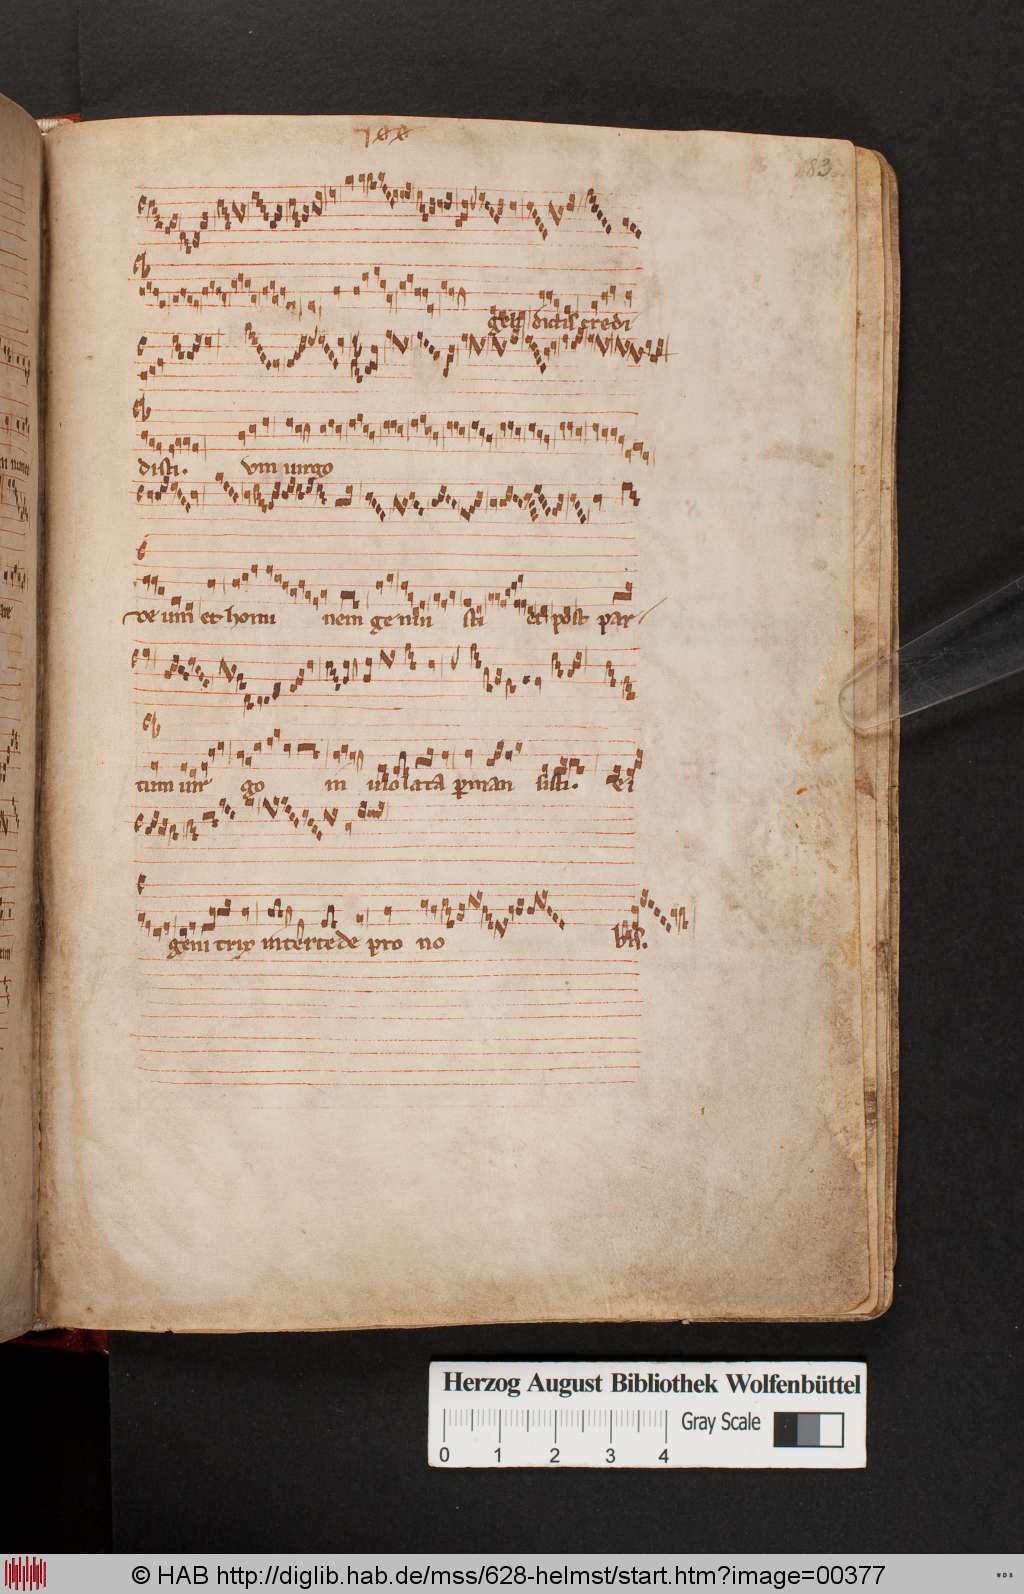 183
gelis dictis credi
disti. Vm uirgo
de um et homi nem ge nui sti et post par
tum uir go in uiolata perman sisti. Ei
geni trix intercede pro no bis.
Herzog August Bibliothek Wolfenbüttel
Gray Scale
0 1 2 3 4
© HAB http://diglib.hab.de/mss/628-helmst/start.htm?image=00377